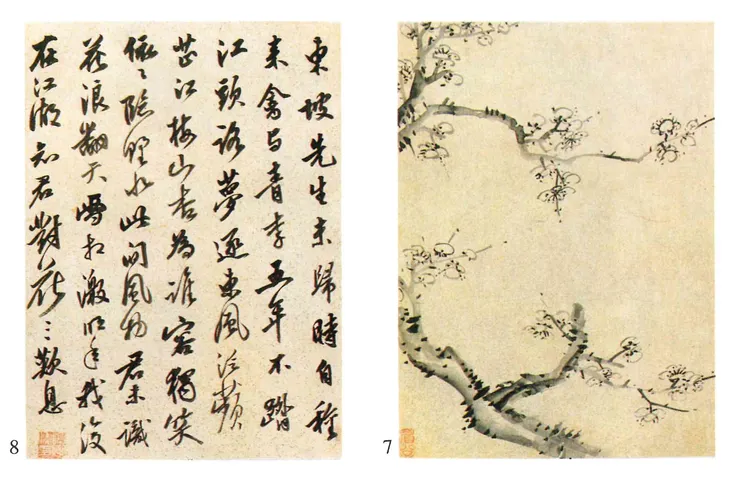 東坡先生未歸時自種
来禽与青李五年不踏
江頭路夢逐東風泛蘋
芷江梅山杏為誰容獨笑
依〻臨野水此間風物君未識
花浪翻天雪相激明年我復
在江湖知君對花三歎息
8
7